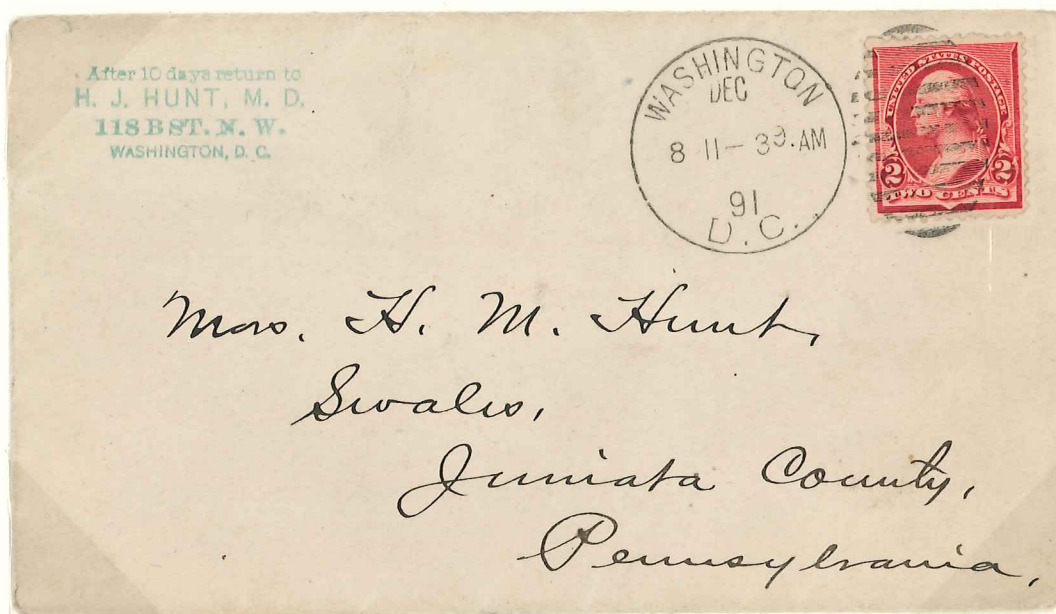 After 10 days return to
H. J. HUNT, M. D.
118 B ST. N. W.
WASHINGTON, D. C.
WASHINGTON
DEC
8 11-30 AM
91
D.C.
UNITED STATES POSTAGE
2 2
TWO CENTS
Mrs. H. M. Hunt,
Swales,
Juniata County,
Pennsylvania,